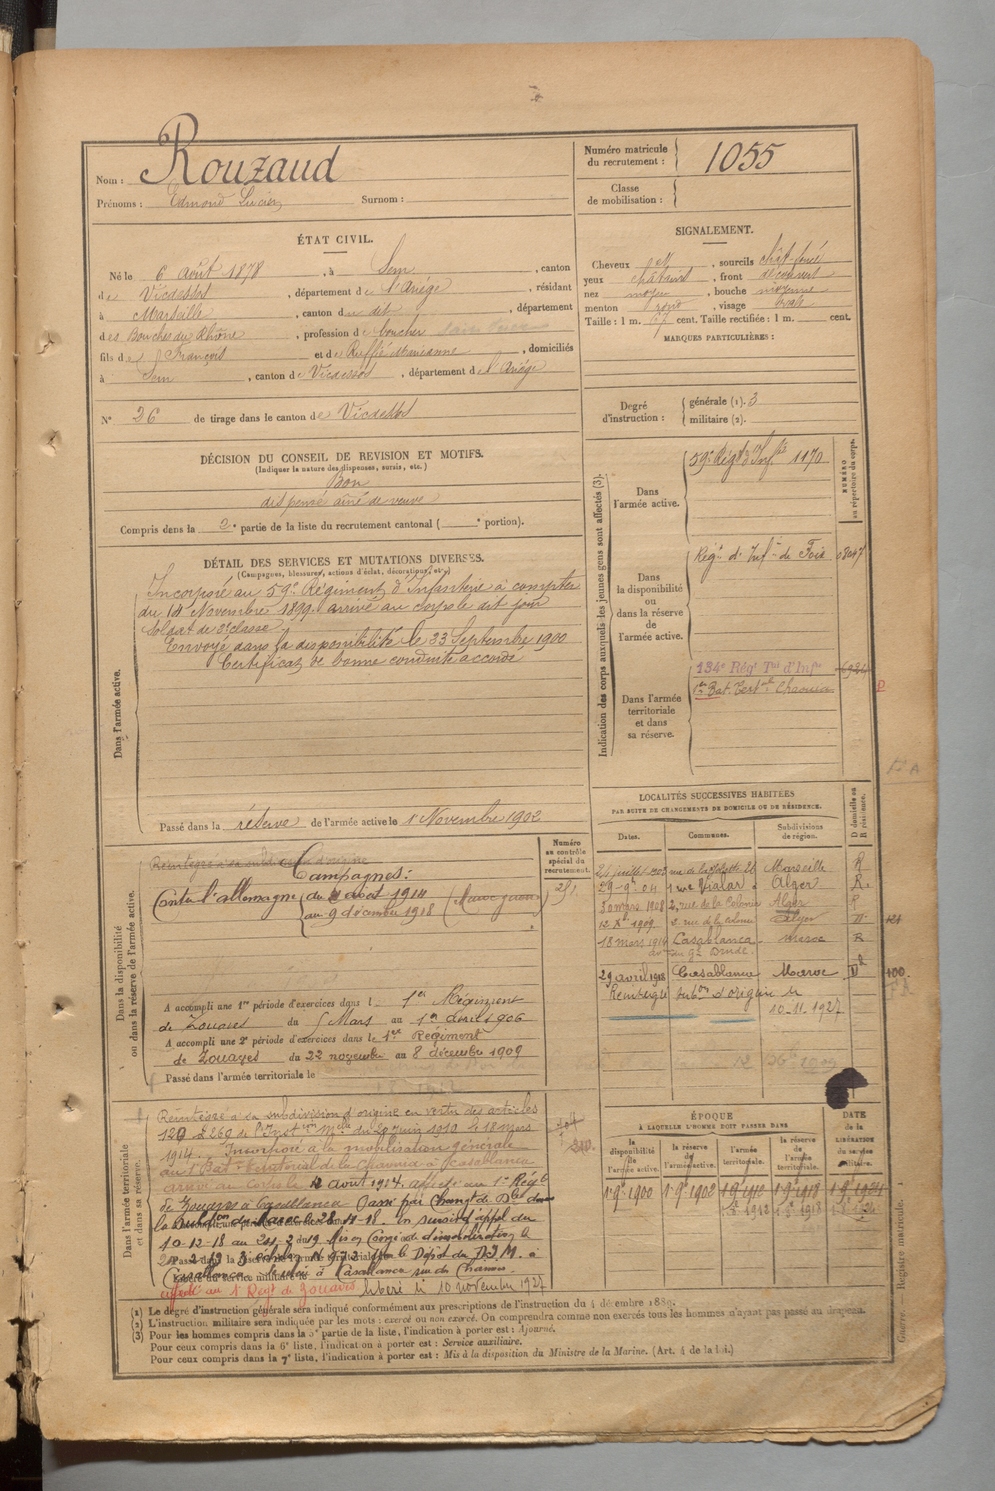 Nom : Rouzaud
Prénoms : Edmond Lucien Surnom :
Numéro matricule du recrutement : 1055
Classe de mobilisation :
ÉTAT CIVIL.
Né le 6 août 1878, à Sem, canton
de Vicdessos, département de l'Ariége, résidant
à Marseille, canton du dit, département
des Bouches du Rhône, profession de boucher
fils de François et de Ruffié Marianne, domiciliés
à Sem, canton de Vicdessos, département de l'Ariége
N° 26 de tirage dans le canton de Vicdessos
SIGNALEMENT.
Cheveux , sourcils chât. foncé
yeux châtains, front découvert
nez moyen, bouche moyenne
menton rond, visage ovale
Taille : 1 m. 67 cent. Taille rectifiée : 1 m. cent.
MARQUES PARTICULIÈRES :
Degré d'instruction : générale (1). 3
militaire (2).
DÉCISION DU CONSEIL DE REVISION ET MOTIFS.
(Indiquer la nature des dispenses, sursis, etc.)
Bon
dispensé aîné de veuve
Compris dans la 2e partie de la liste du recrutement cantonal ( e portion).
DÉTAIL DES SERVICES ET MUTATIONS DIVERSES.
(Campagnes, blessures, actions d'éclat, décorations, etc.)
Dans l'armée active.
Incorporé au 59e Régiment d'Infanterie à compter
du 14 Novembre 1899. arrivé au corps le dit jour
Soldat de 2e classe
Envoyé dans la disponibilité le 23 Septembre 1900
Certificat de bonne conduite accordé
Passé dans la réserve de l'armée active le 1 Novembre 1902
Indication des corps auxquels les jeunes gens sont affectés (3).
NUMÉRO au répertoire du corps.
Dans l'armée active.
59e Régt d'Infie 1170
Dans la disponibilité ou dans la réserve de l'armée active.
Régt d'Infie de Foix 03047
Dans l'armée territoriale et dans sa réserve.
134e Régt Tal d'Infie 6924
1er Bat. Territal Chaouia
LOCALITÉS SUCCESSIVES HABITÉES
PAR SUITE DE CHANGEMENTS DE DOMICILE OU DE RÉSIDENCE.
Dates. Communes. Subdivisions de région. D domicile ou R résidence.
Marseille R
29-9bre 04 1 rue Vialar Alger R.
3 mars 1908 2, rue de la Colonie Alger R
12 Xbre 1909. 2. rue de la colonie Alger
18 mars 1914 Casablanca maroc R
av. du Gal Drude.
29 avril 1918 Casablanca Maroc D 100.
Réintegré subon d'origine le
10-11-1927
Dans la disponibilité ou dans la réserve de l'armée active.
Numéro au contrôle spécial du recrutement.
Réintégré à sa subdivision d'origine
Campagnes :
Contre l'allemagne du 4 août 1914
au 9 décembre 1918
A accompli une 1re période d'exercices dans le 1er Régiment
de Zouaves du 5 Mars au 1er avril 1906
A accompli une 2e période d'exercices dans le 1er Régiment
de Zouaves du 22 novembre au 8 décembre 1909
Passé dans l'armée territoriale le
Dans l'armée territoriale et dans sa réserve.
Réintégré à sa subdivision d'origine en vertu des articles
120 à 269 de l'Instion Melle du 20 juin 1910 le 18 mars
1914. Incorporé à la mobilisation générale
au 1er Bat. Territorial de la Chaouia à Casablanca
arrivé au Corps le août 1914. affecté au 1er Régt
de Zouaves à Casablanca Passé par changt de Dle dans
la subdon du Maroc le 28-4-18. En sursis d'appel du
10-12-18 au 24-2-19 Mis en Congé de démobilisation le
affecté au 1er Régt de Zouaves libéré le 10 novembre 1927
ÉPOQUE
A LAQUELLE L'HOMME DOIT PASSER DANS
la disponibilité de l'armée active.
la réserve de l'armée active.
l'armée territoriale.
la réserve de l'armée territoriale.
DATE de la LIBÉRATION du service militaire.
1 9bre 1900 1 9bre 1902 1 9bre 1912 1 9bre 1918 1 9bre 1924
(1) Le degré d'instruction générale sera indiqué conformément aux prescriptions de l'instruction du 4 décembre 1889.
(2) L'instruction militaire sera indiquée par les mots : exercé ou non exercé. On comprendra comme non exercés tous les hommes n'ayant pas passé au drapeau.
(3) Pour les hommes compris dans la 5e partie de la liste, l'indication à porter est : Ajourné.
Pour ceux compris dans la 6e liste, l'indication à porter est : Service auxiliaire.
Pour ceux compris dans la 7e liste, l'indication à porter est : Mis à la disposition du Ministre de la Marine. (Art. 4 de la loi.)
Guerre. Registre matricule. 1